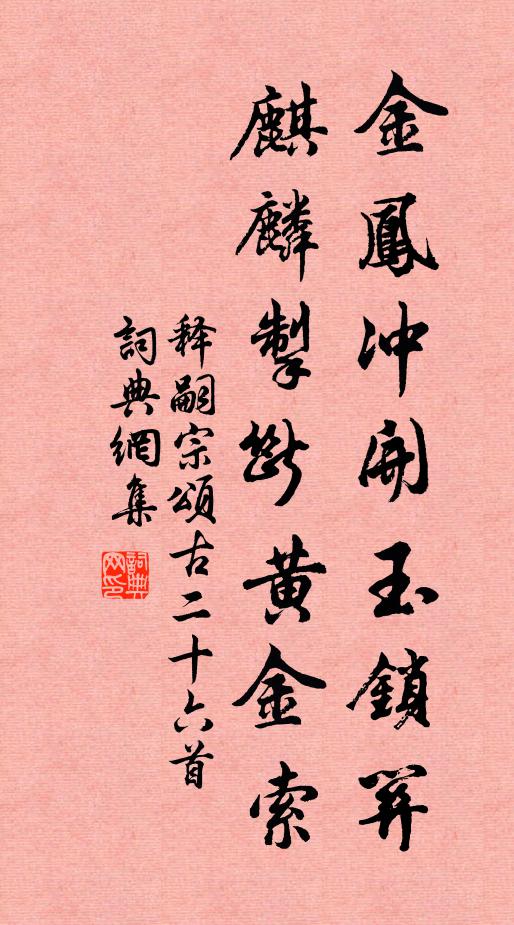 金鳳冲開玉鎖關
麒麟掣斷黄金索
释嗣宗頌古二十六首
詞典網集
詞典网印